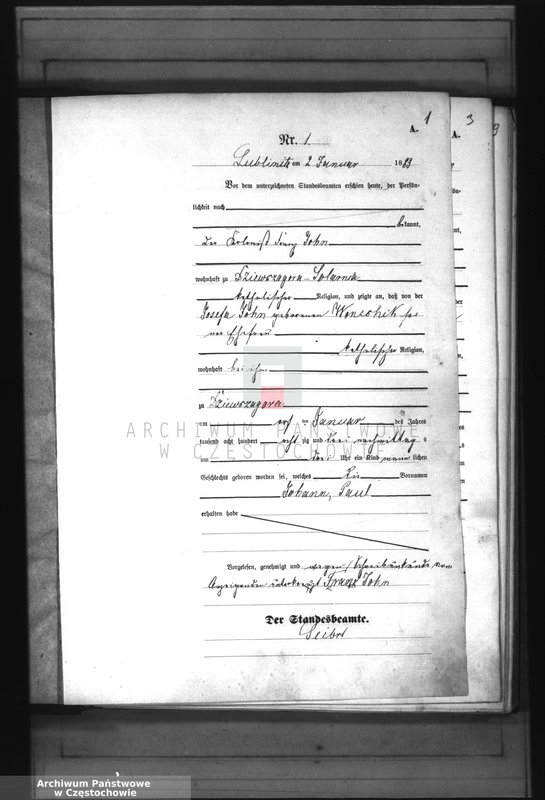 1
3
A.
A.
Nr. 1
Lublinitz am 2 Januar 1883
Vor dem unterzeichneten Standesbeamten erschien heute, der Persön-
lichkeit nach
bekannt,
der Kolonist Franz John
wohnhaft zu Dziewszagora-Solarnia
katholischer Religion, und zeigte an, daß von der
Josefa John geborenen Wonschik sei
ner Ehefrau
katholischer Religion,
wohnhaft bei ihm
zu Dziewszagora
am ersten Januar des Jahres
tausend acht hundert acht zig und drei nachmittag s
um drei Uhr ein Kind männ lichen
Geschlechts geboren worden sei, welches die Vornamen
Johann, Paul
erhalten habe
Vorgelesen, genehmigt und wegen Schreibunkunde vom
Anzeigenden unterkreuzt Franz John
Der Standesbeamte.
Seibt
ARCHIWUM PAŃSTWOWE
W CZĘSTOCHOWIE
Archiwum Państwowe
w Częstochowie